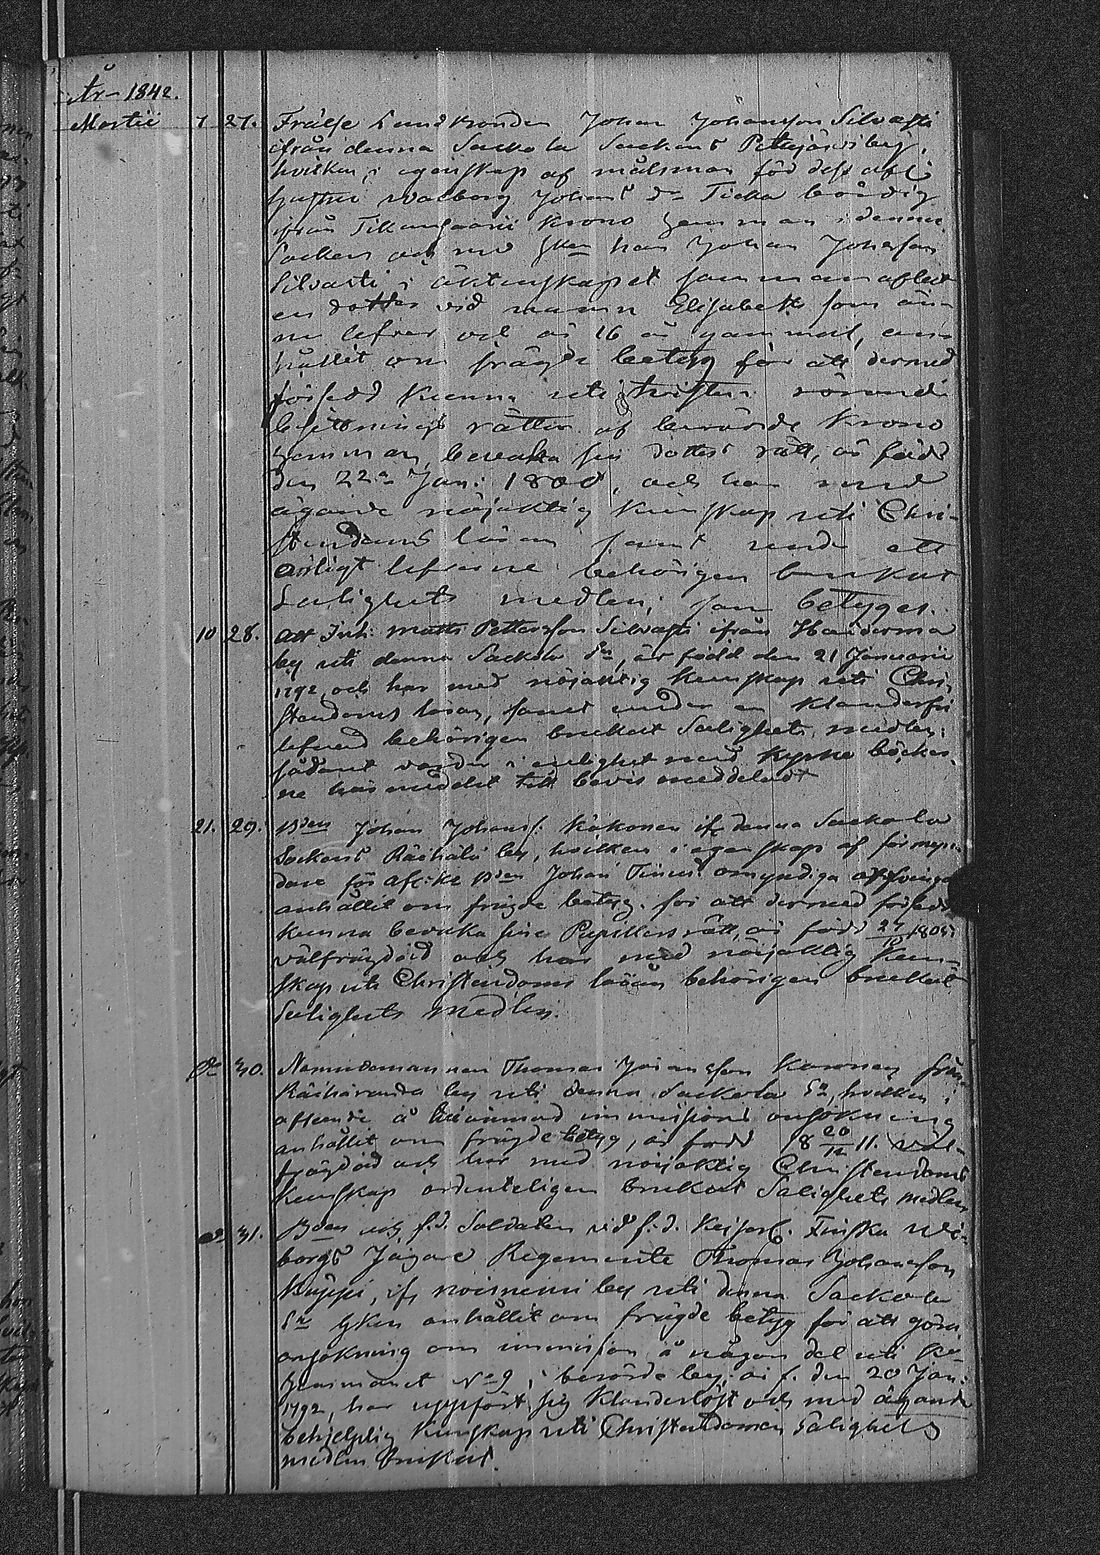 År 1842.
Martii 7 27. Frälse Landbonden Johan Johansson Silvasti
ifrån denna Sackola Sockens Petäjärvi by,
hvilken i egenskap af målsman för dess afl.
hustru Walborg Johans dr Ticka bördig
ifrån Krono hemman i denna
Socken och med hvilken han Johan Johansson
Silvasti i äktenskapet sammanaflat
en dotter vid namn Elisabeth som än-
nu lefver och är 16 år gammal, an-
hållit om frägde betyg för att dermed
försedd kunna uti tvisten rörande
besittnings rätten af berörde Krono
hemman, bevaka sin dotters rätt, är född
den 22a Jan: 1800, och har med
ägande nöjaktig kunskap uti Chri-
stendoms läran samt under ett
ärligt lefverne behörigen brukat
Salighets medlen; som betygas.
10 28. Att Inh: Matts Pettersson Silvasti ifrån Haiderma
by uti denna Sackola Sn, är född den 21 Januarii
1792, och har med nöjaktig kunskap uti Chri-
stendoms läran, samt under en klanderfri
lefnad behörigen brukat Salighets medlen;
sådant varder i enlighet med kyrko böcker-
ne härmedelst till bevis meddeladt
21. 29. Bden Johan Johanss. Käkönen ifr denna Sackola
Sockens Räihälä by, hvilken i egenskap af förmyn-
dare för afl. Bden Johan omyndiga
anhållit om frägde betyg. för att dermed försedd
kunna bevaka sine Pupillers rätt, är född 1805
välfrägdad och har med nöjaktig kun-
skap uti Christendoms läran behörigen brukat
Salighets medlen.
do 30. Nämndemannen Thomas Karonen från
Räihäranda by uti denna Sackola Sn, hvilken i
afseende å immissions ansökning
anhållit om frägde betyg, är född 18 20/12 11. väl-
frägdad och har med nöjaktig Christendoms
kunskap ordenteligen brukat Salighets medlen
do 31. Bden och f.d. Soldaten vid f.d. Keiserl. Finska Wi-
borgs Jägare Regemente Thomas Johansson
ifr Noisniemi by uti denna Sackola
Sn hvilken anhållit om frägde betyg för att göra
ansökning om immission å någon del uti Kr
hemmanet No 9, i berörde by, är f. den 20 Jan:
1792, har uppfört sig klanderlöst och med ägande
behjelplig kunskap uti Christendomen Salighets
medlen brukat.